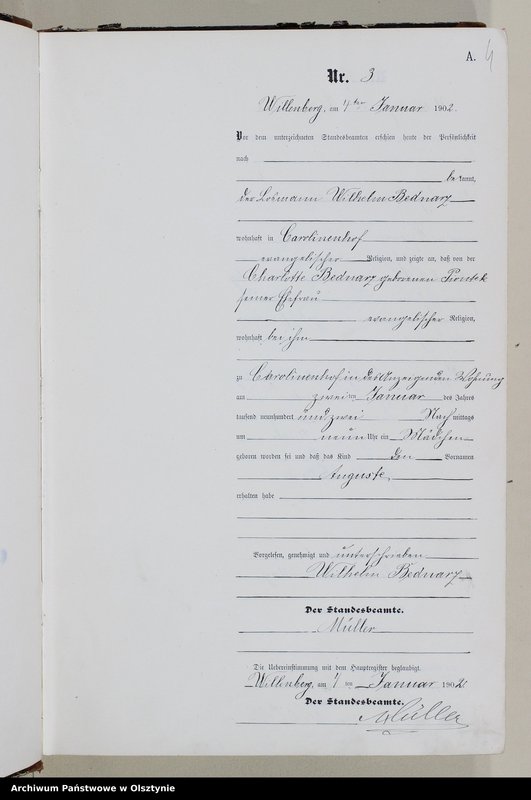 A. 4
Nr. 3
Willenberg, am 4ten Januar 1902.
Vor dem unterzeichneten Standesbeamten erschien heute der Persönlichkeit
nach
be kannt,
der Losmann Wilhelm Bednarz
wohnhaft in Carolinenhof
evangelischer Religion, und zeigte an, daß von der
Charlotte Bednarz geborenen
seiner Ehefrau
evangelischer Religion,
wohnhaft bei ihm
zu Carolinenhof in des Anzeigenden Wohnung
am zweiten Januar des Jahres
tausend neunhundert und zwei Nach mittags
um neun Uhr ein Mädchen
geboren worden sei und daß das Kind den Vornamen
Auguste
erhalten habe
Vorgelesen, genehmigt und unterschrieben
Wilhelm Bednarz
Der Standesbeamte.
Müller
Die Uebereinstimmung mit dem Hauptregister beglaubigt.
Willenberg, am 4ten Januar 1902.
Der Standesbeamte.
Müller
Archiwum Państwowe w Olsztynie